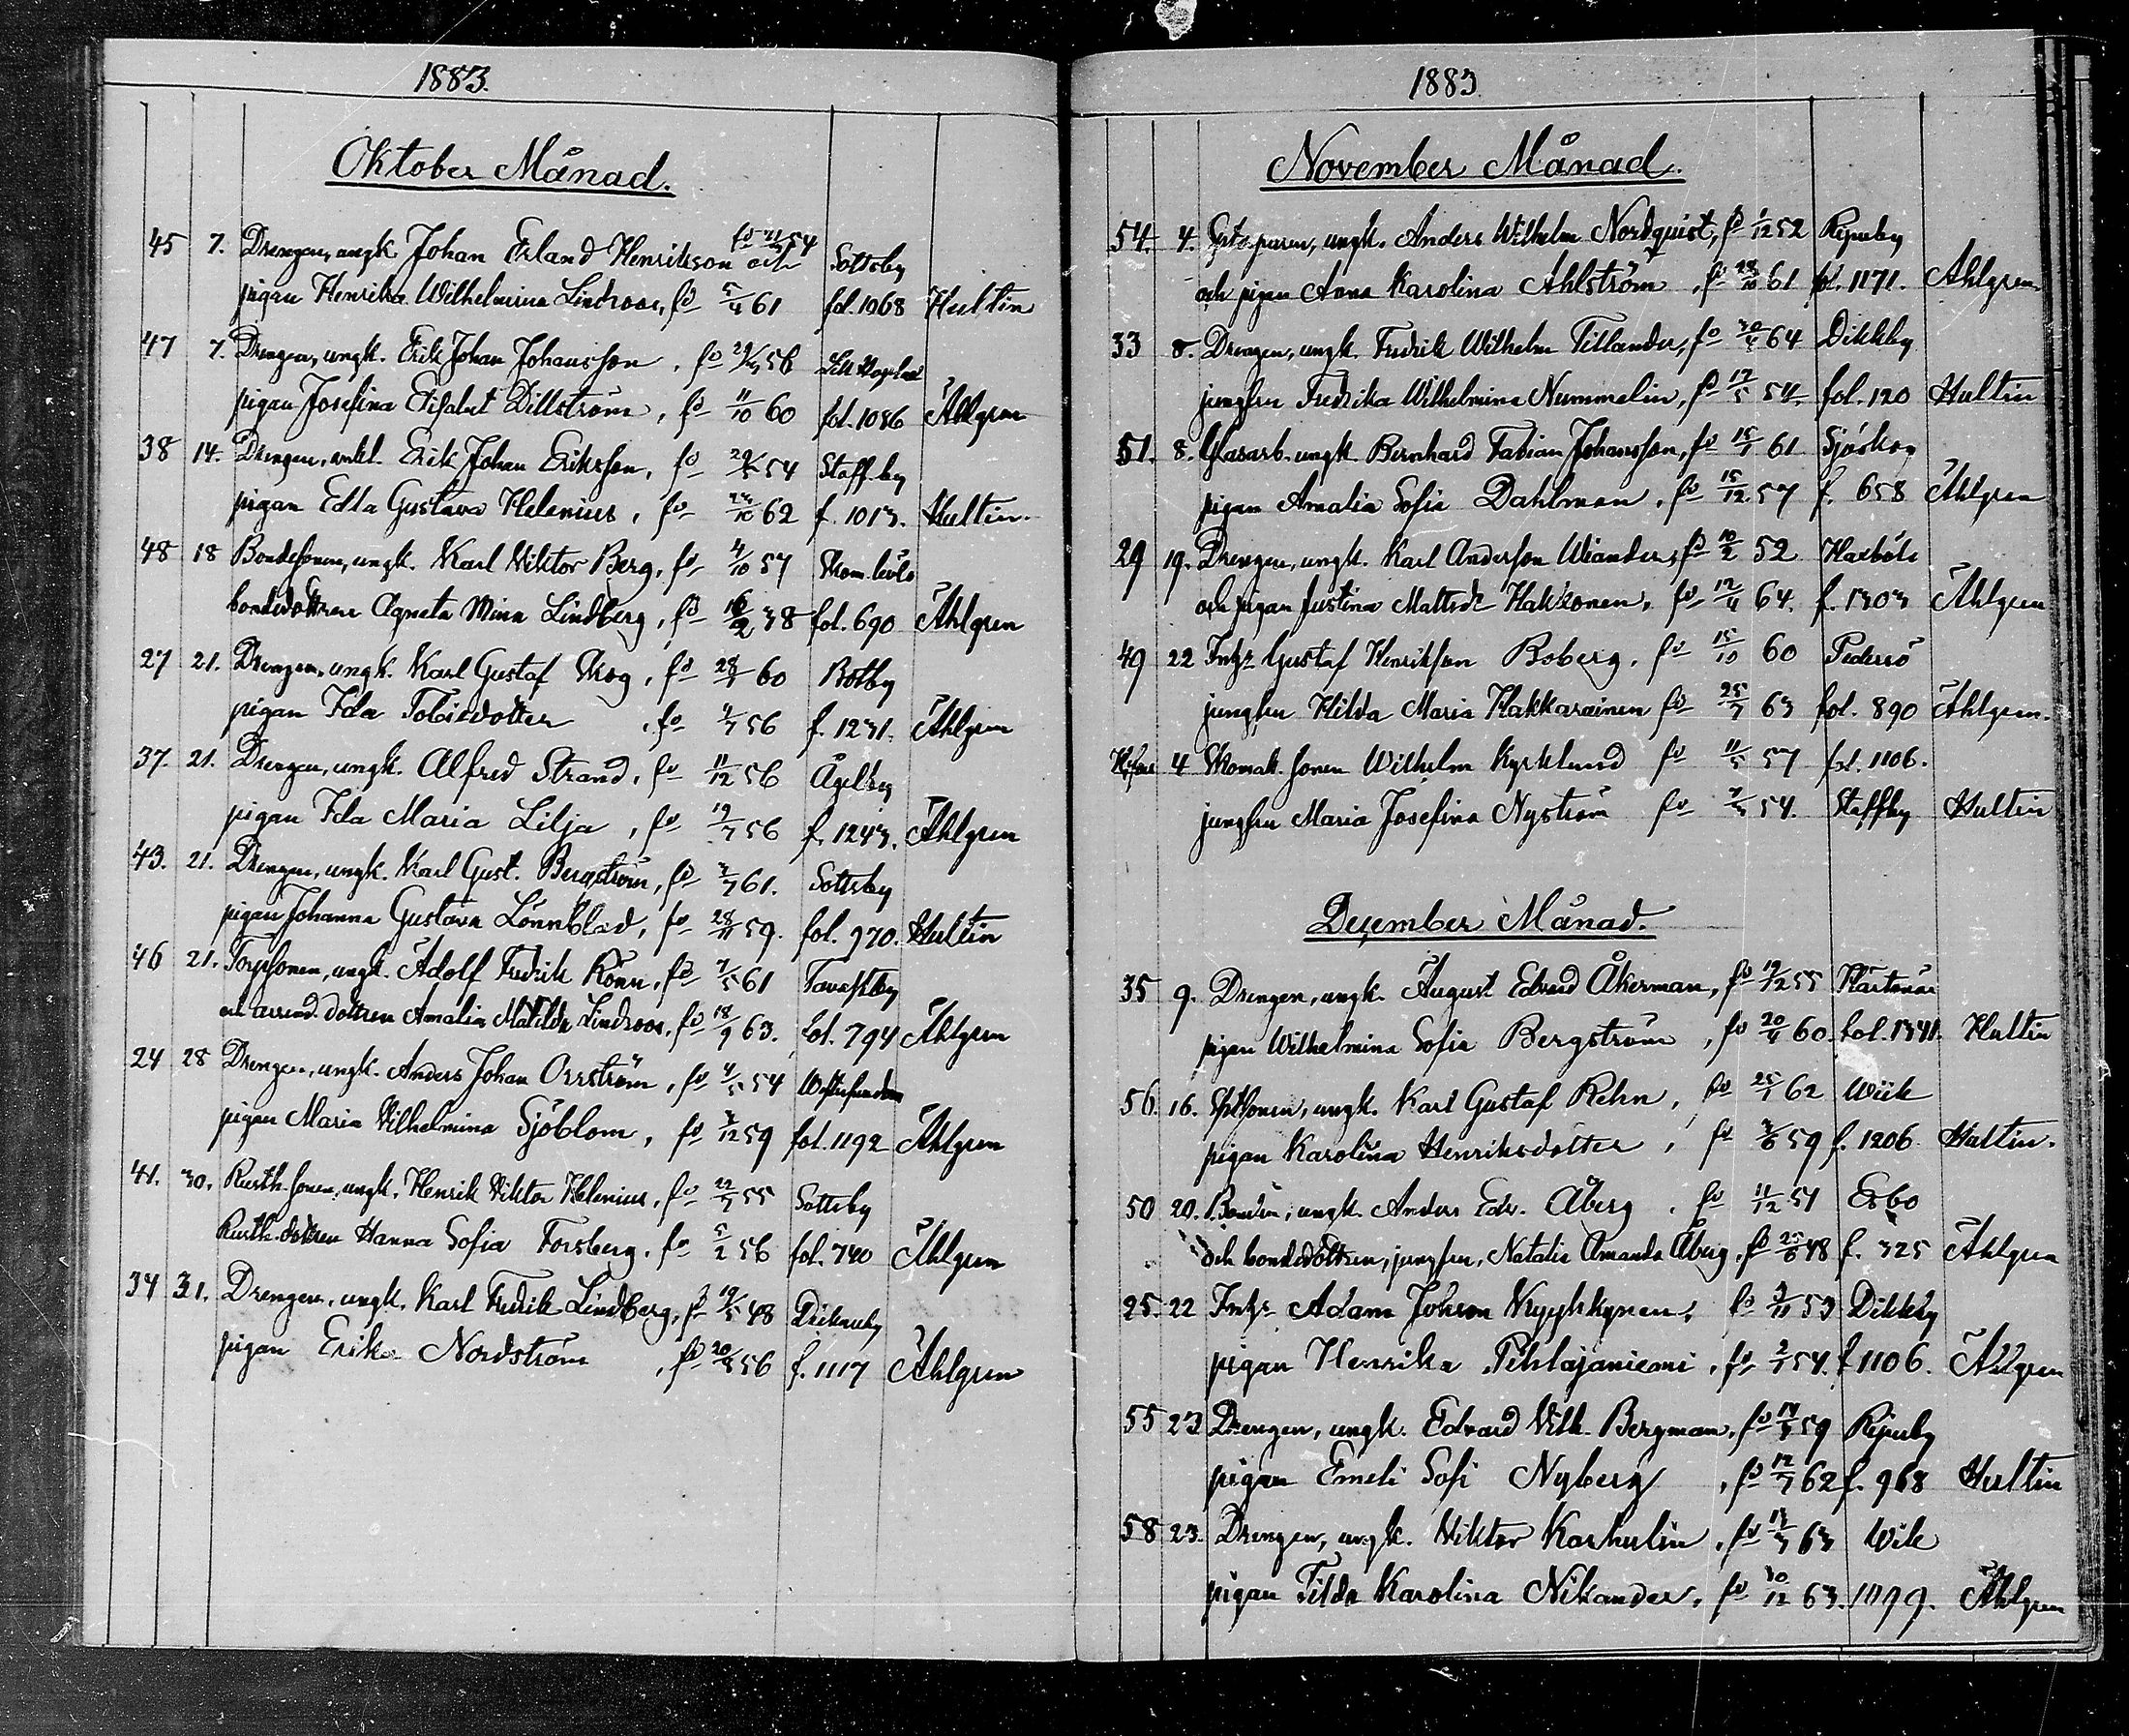 1883.
Oktober Månad.
45 7. Drengen, ungk. Johan Erland Henriksson och fd 54 Sottsby
pigan Henrika Wilhelmina Lindroos, fd 5/4 61 fol. 1068 Hultin
47 7. Drengen, ungk. Erik Johan Johansson, fd 56
pigan Josefina Elisabet Dillström, fd 11/10 60 fol. 1086 Ahlgren
38 14. Drengen, enkl. Erik Johan Eriksson, fd 54 Staff.by
pigan Edla Gustava Helenius, fd 62 f. 1013. Hultin.
48 18 Bondesonen, ungk. Karl Viktor Berg, fd 4/10 57
bondedottren Agneta Mina Lindberg, fd 38 fol. 690 Ahlgren
27 21. Drengen, ungk. Karl Gustaf Skog, fd 60 Botby
pigan Ida Tobisdotter, fd 56 f. 1231. Ahlgren
37. 21. Drengen, ungk. Alfred Strand, fd 11/12 56
pigan Ida Maria Lilja, fd 19/7 56 f. 1243. Ahlgren
43. 21. Drengen, ungk. Karl Gust. Bergström, fd 61. Sottsby
pigan Johanna Gustava Lönnblad, fd 28/11 59. fol. 970. Hultin
46 21. Torpsonen, ungk. Adolf Fredrik Rönn, fd 7/5 61 Tavastby
och arrend. dottren Amalia Matilda Lindroos, fd 18/9 63. fol. 794 Ahlgren
24 28 Drengen, ungk. Anders Johan Orrström, fd 54
pigan Maria Vilhelmina Sjöblom, fd 59 fol. 1192 Ahlgren
41. 30. Rusth. sonen, ungk. Henrik Viktor Helenius, fd 55 Sottsby
Rusth. dottren Hanna Sofia Forsberg, fd 5/2 56 fol. 740 Ahlgren
34 31. Drengen, ungk. Karl Fredrik Lindberg, fd 19/5 48
pigan Erika Nordström, fd 56 f. 1117 Ahlgren
1883
November Månad.
54 4. ungk. Anders Wilhelm Nordquist, fd 1/12 52 Ripuby
och pigan Anna Karolina Ahlström, fd 28/10 61 fol. 1171. Ahlgren
33 8. Drengen, ungk. Fredrik Wilhelm Tillander, fd 64 Dikkby
jungfru Fredrika Wilhelmina Nummelin, fd 17/5 54. fol. 120 Hultin
51. 8. Glasarb. ungk. Bernhard Fabian Johansson, fd 61 Sjöskog
pigan Amalia Sofia Dahlman, fd 15/12 57 f. 658 Ahlgren
29 19. Drengen, ungk. Karl Andersson Wiander, fd 10/2 52 Haxböle
och pigan Justina Mattsdr Hakkonen, fd 12/4 64. f. 1303 Ahlgren
49 22 Inhr Gustaf Henriksson Boberg, fd 15/10 60 Pedersö
jungfru Hilda Maria Hakkarainen fd 25/7 63 fol. 890 Ahlgren.
4 Skomak. sonen Wilhelm Kyrklund fd 11/5 57 fol. 1106.
jungfru Maria Josefina Nyström fd 54. Staffby Hultin
December Månad.
35 9. Drengen, ungk. August Edvard Åkerman, fd 55
pigan Wilhelmina Sofia Bergström, fd 20/4 60. fol. 1341. Hultin
56. 16. ungk. Karl Gustaf Rehn, fd 62 Wiik
pigan Karolina Henriksdotter, fd 59 f. 1206 Hultin.
50 20. Bonden, ungk. Anders Edv. Åberg, fd 11/12 51 Esbo
och bondedottren, jungfru, Natalia Amanda Åberg, fd 48 f. 325 Ahlgren
25. 22 Inhr Adam Johsson Krypkkynen, fd 53 Dikkby
pigan Henrika Pihlajaniemi, fd 54. f. 1106. Ahlgren
55 23 Drengen, ungk. Edvard Vilh. Bergman, fd 59 Ripuby
pigan Emeli Sofi Nyberg, fd 12/7 62 f. 968 Hultin
58 23. Drengen, ungk. Viktor Karhulin, fd 63 Wik
pigan Tilda Karolina Nikander, fd 30/12 63. 1099. Ahlgren